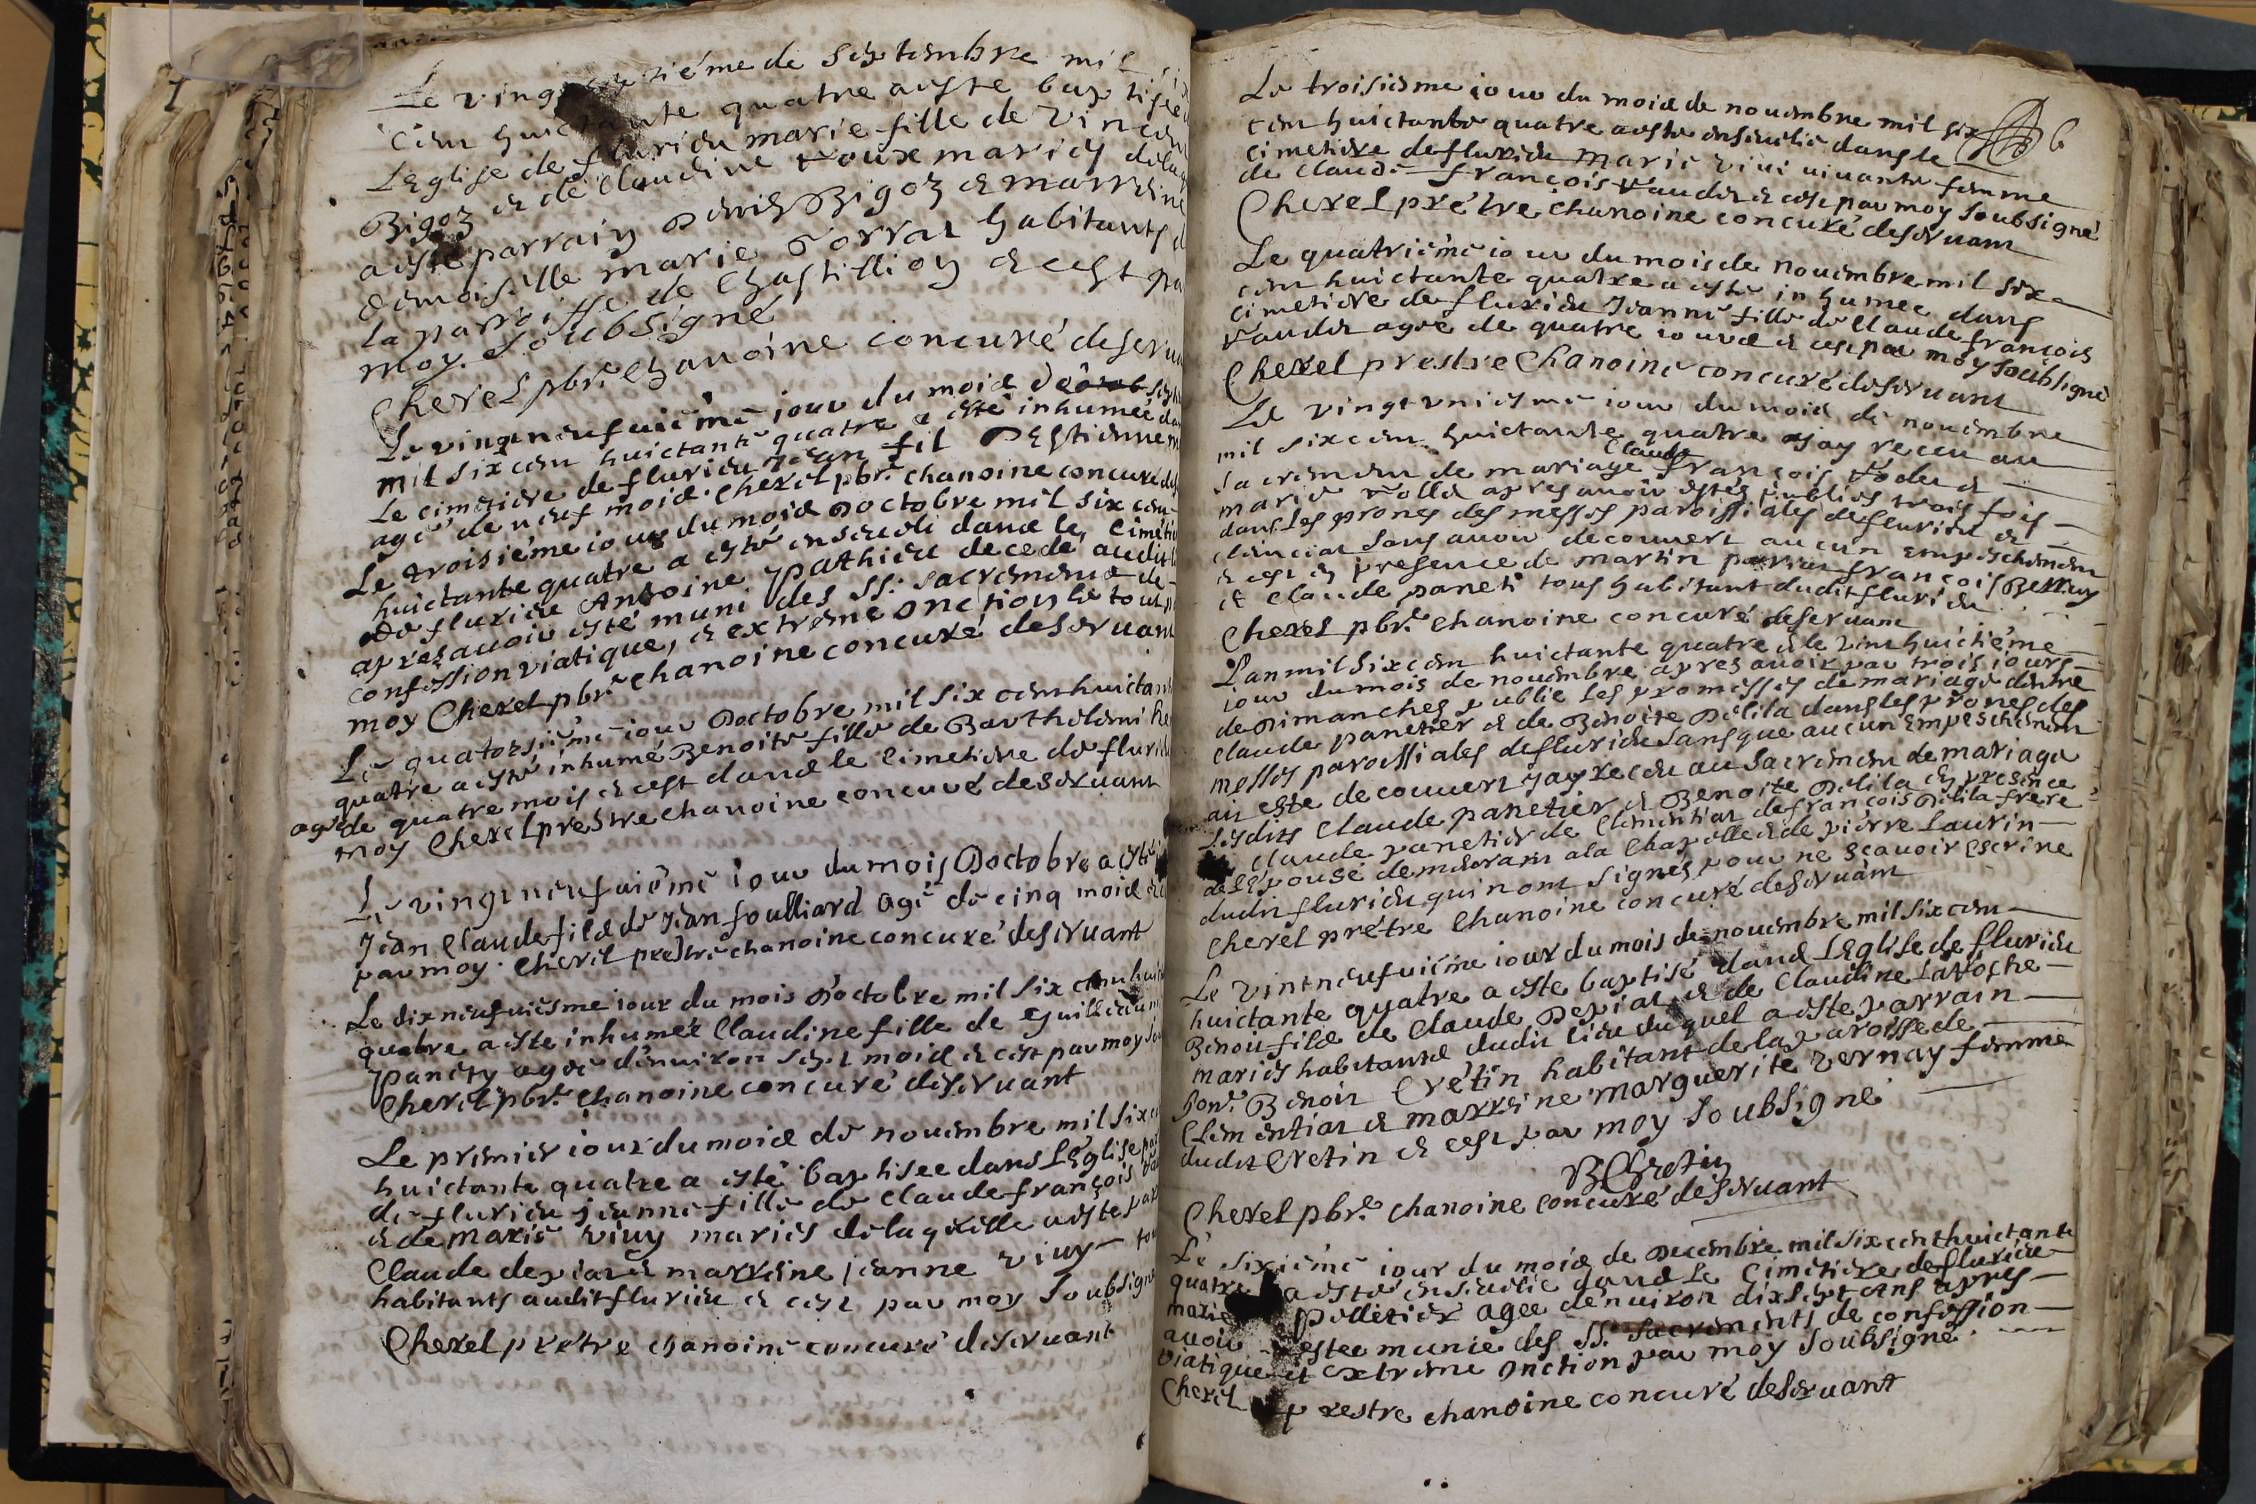 Le vingt septiéme de Septembre mil six
cent huictante quatre a esté baptisée
L'Eglise de flurieu marie fille de Vincent
Bigoz et de Claudine Roux mariés de laq
a esté parrain Denis Bigoz et marreine
demoiselle marie Torrat habitants d
la parroisse de Chastillion et cest pa
moy Soubsigné
Cherel pbr. Chanoine concuré deserua
Le vingt neufuiéme iour du moid Sept
mil six cent huictante quatre a esté inhumeé da
Le cimetiere de fluriеu Jean fil D'Estienne
agé de neuf moid. Cherel pbr. chanoine concuré des
Le troisiéme iour du moid Doctobre mil six cen
huictante quatre a esté enseueli dans le cimetie
de flurieu Antoine pathieu decede audit
apres auoir esté muni des SS: Sacrements de
confession viatique, et extreme onction le tout
moy Cherel pbr. chanoine concuré deseruant
Le quatorsiéme iour Doctobre mil six cent huictan
quatre a esté inhumé Benoite fille de Barthelemi
agée de quatre mois et cest dans le cimetiere de flurieu
moy Cherel prestre chanoine concuré deseruant
Le vingt neufuiéme iour du mois Doctobre a esté
Jean Claude fils de Jean foulliard agé de cinq moid et
par moy. Cherel prestre chanoine concuré deseruant
Le dix neufuiésme iour du mois D'octobre mil six cent huic
quatre a esté inhumeé Claudine fille de
panety ageé denuiron sept moid et cest par moy Sou
Cherel pbr. chanoine concuré deseruant
Le premier iour du moid de nouembre mil six ce
huictante quatre a esté baptisee dans L'Eglise par
de flurieu jeanne fille de Claude françois
et de marie viuy mariés de laquelle a esté par
Claude depiar et marreine jeanne viuy — tou
habitants audit flurieu et cest par moy Soubsigné
Cherel prétre chanoine concuré deseruant
6
Le troisiesme iour du moid de nouembre mil six
cent huictante quatre a esté enseuelie dans le
cimetiere de flurieu marie viui viuante femme
de Claude françois Vaudet et cest par moy Soubsigné
Cherel prétre chanoine concuré deseruant
Le quatriéme iour du mois de nouembre mil six
cent huictante quatre a esté inhumee dans
cimetiere de flurieu Jeanne fille de Claude françois
Vaudet ageé de quatre iours et cest par moy Soubsigné
Cherel prestre Chanoine concuré deseruant
Le vingt uniesme iour du moid de nouembre
mil six cent huictante quatre jay receu au
Sacrement de mariage Claude françois et
marie apres auoir estés publiés trois fois
dans les prones des messes paroissiales de flurieu et
clemencia sans auoir decouuert aucun Empeschement
et cest en presence de martin françois
et Claude paneti tous habitant dudit flurieu
Cherel pbr. chanoine concuré deseruant
L'an mil six cent huictante quatre et le vint huictiéme
iour du mois de nouembre apres auoir par trois iours
de Dimanches publié les promesses de mariage d'entre
Claude panetier et de Benoite Delila dans les prones des
messes paroissiales de flurieu sans que aucun empeschement
ait este decouuert jay receu au Sacrement de mariage
Lesdits Claude panetier et Benoite Delila en presence
de Claude panetier de Clementiat de françois Delila frere
de L'Epouse demeurant a la Chapelle et de pierre Laurin
dudit flurieu qui nont signés pour ne scauoir escrire
Cherel prétre Chanoine concuré deseruant
Le vint neufuiéme iour du mois de nouembre mil six cent
huictante quatre a esté baptisé dans L'Eglise de flurieu
Benoit fils de Claude Depiat et de Claudine Laroche
mariés habitants dudit lieu duquel a esté parrain
hon. Benoit Cretin habitant de la paroisse de
Clementiat et marreine marguerite vernay femme
dudit Cretin et cest par moy Soubsigné
B Cretin
Cherel pbr. chanoine concuré deseruant
Le sixiéme iour du moid de Decembre mil six cent huictante
quatre a esté enseuelie dans le cimetiere de flurieu
marie pelletier ageé denuiron dix sept ans apres
auoir estee munie des SS. Sacrements de confession
viatique et extreme onction par moy Soubsigné
Cherel prestre chanoine concuré deseruant